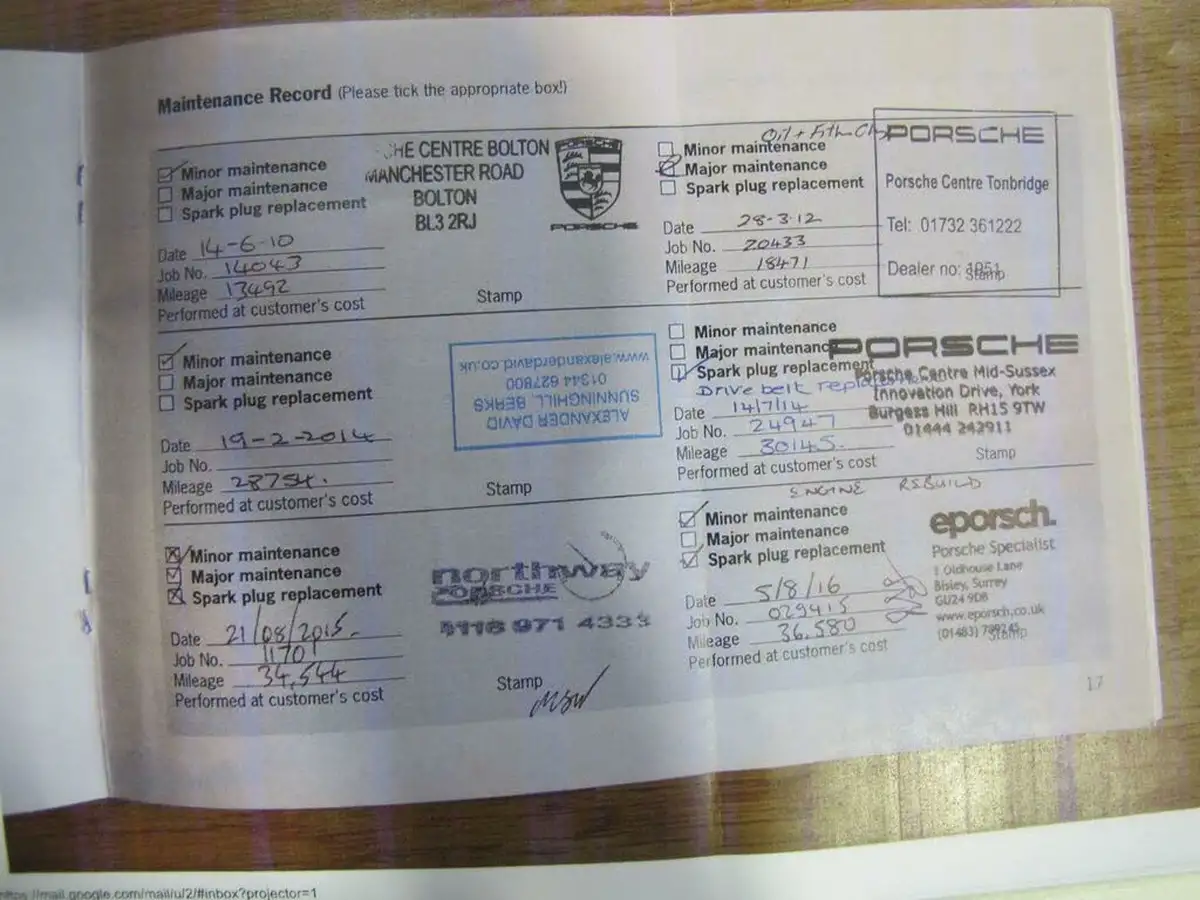 Maintenance Record (Please tick the appropriate box!)
Minor maintenance
Major maintenance
Spark plug replacement
Date 14-6-10
Job No. 14043
Mileage 13492
Performed at customer's cost
HE CENTRE BOLTON
MANCHESTER ROAD
BOLTON
BL3 2RJ
PORSCHE
PORSCHE
Stamp
Oil + Filth
Minor maintenance
Major maintenance
Spark plug replacement
Date 28-3-12
Job No. 20433
Mileage 18471
Performed at customer's cost
PORSCHE
Porsche Centre Tonbridge
Tel: 01732 361222
Dealer no: 1951
Stamp
Minor maintenance
Major maintenance
Spark plug replacement
Date 19-2-2014
Job No.
Mileage 28754.
Performed at customer's cost
ALEXANDER DAVID
SUNNINGHILL BERKS
01344 627800
www.alexanderdavid.co.uk
Stamp
Minor maintenance
Major maintenance
Spark plug replacement
Drive belt
Date 14/7/14
Job No. 24947
Mileage 30145.
Performed at customer's cost
PORSCHE
Porsche Centre Mid-Sussex
Innovation Drive, York
Burgess Hill RH15 9TW
01444 242911
Stamp
Minor maintenance
Major maintenance
Spark plug replacement
Date 21/08/2015.
Job No. 11701
Mileage 34,544
Performed at customer's cost
northway
PORSCHE
0118 971 4333
Stamp
ENGINE REBUILD
Minor maintenance
Major maintenance
Spark plug replacement
Date 5/8/16
Job No. 029415
Mileage 36,580
Performed at customer's cost
eporsch.
Porsche Specialist
1 Oldhouse Lane
Bisley, Surrey
GU24 9DB
www.eporsch.co.uk
(01483)
Stamp
17
https://mail.google.com/mail/u/2/#inbox?projector=1